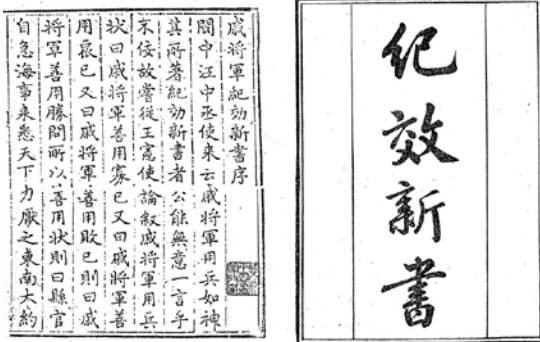 紀效新書
戚將軍紀効新書序
閩中汪中丞使来云戚將軍用兵如神
其所著紀効新書者公能無意一言乎
不佞故嘗從王憲使論叙戚將軍用兵
状曰戚將軍善用寡已又曰戚將軍善
用衆已又曰戚將軍善用敗已則曰戚
將軍善用勝問所以善用状則曰縣官
自急海事来悉天下力厭之東南大約